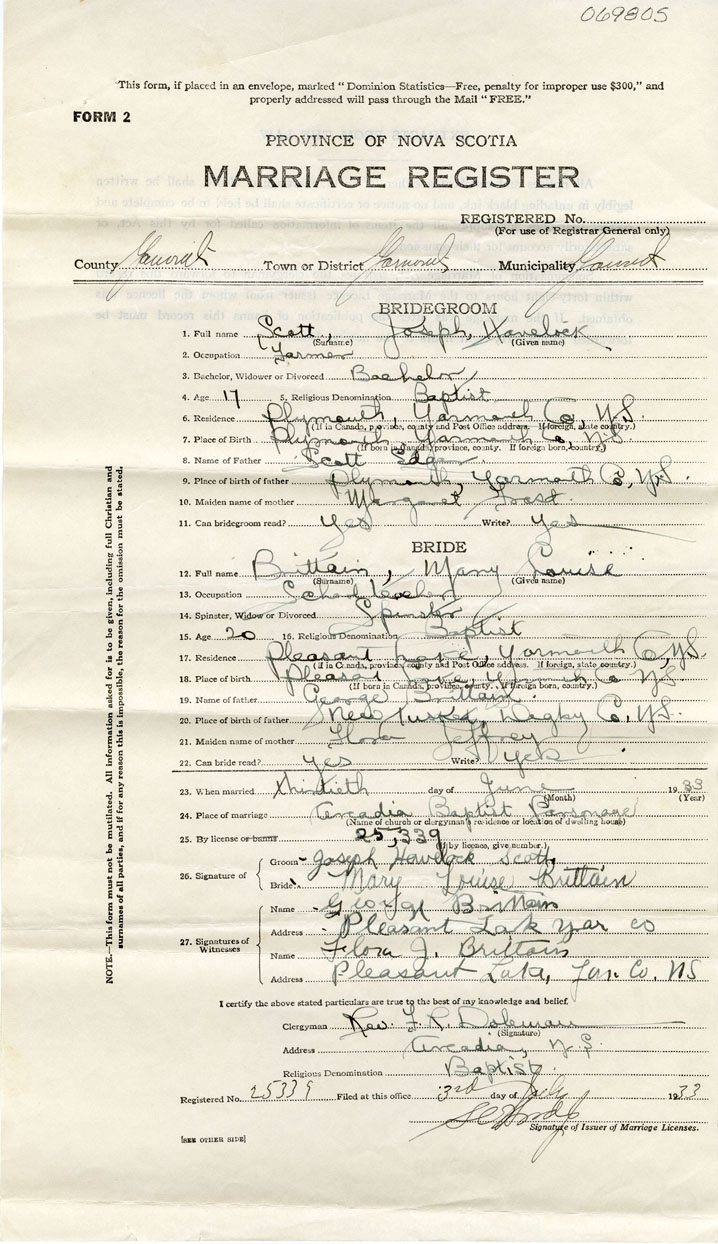 069805
This form, if placed in an envelope, marked "Dominion Statistics—Free, penalty for improper use $300," and
properly addressed will pass through the Mail "FREE."
FORM 2
PROVINCE OF NOVA SCOTIA
MARRIAGE REGISTER
REGISTERED No.
(For use of Registrar General only)
County Yarmouth Town or District Yarmouth Municipality Yarmouth
BRIDEGROOM
1. Full name Scott, Joseph, Havelock
(Surname) (Given name)
2. Occupation Farmer
3. Bachelor, Widower or Divorced Bachelor
4. Age 17 5. Religious Denomination Baptist
6. Residence Plymouth, Yarmouth Co, N.S
(If in Canada, province, county and Post Office address. If foreign, state country.)
7. Place of Birth Plymouth Yarmouth Co, N.S
(If born in Canada, province, county. If foreign born, country.)
8. Name of Father Scott Edgar
9. Place of birth of father Plymouth, Yarmouth Co, N.S.
10. Maiden name of mother Margaret
11. Can bridegroom read? Yes Write? Yes
BRIDE
12. Full name Brittain, Mary Louise
(Surname) (Given name)
13. Occupation School teacher
14. Spinster, Widow or Divorced Spinster
15. Age 20 16. Religious Denomination Baptist
17. Residence Pleasant Lake, Yarmouth Co, N.S.
(If in Canada, province, county and Post Office address. If foreign, state country.)
18. Place of birth Pleasant Lake, Yarmouth Co N.S
(If born in Canada, province, county. If foreign born, country.)
19. Name of father George Brittain
20. Place of birth of father New Tusket, Digby Co, N.S.
21. Maiden name of mother Flora Jeffrey
22. Can bride read? Yes Write? Yes
23. When married thirtieth day of June 1933
(Month) (Year)
24. Place of marriage Arcadia Baptist Parsonage
(Name of church or clergyman's residence or location of dwelling house)
25. By license or banns 25,339
(If by licence, give number.)
26. Signature of Groom Joseph Havelock Scott
Bride Mary Louise Brittain
27. Signatures of Witnesses
Name George Brittain
Address Pleasant Lak Yar Co
Name Flora J. Brittain
Address Pleasant Lake, Yar. Co. NS
I certify the above stated particulars are true to the best of my knowledge and belief.
Clergyman Rev. F. R. Doleman
(Signature)
Address Arcadia, N.S
Religious Denomination Baptist
Registered No. 25339 Filed at this office 3rd day of July 1933
Signature of Issuer of Marriage Licenses.
[SEE OTHER SIDE]
NOTE.—This form must not be mutilated. All information asked for is to be given, including full Christian and
surnames of all parties, and if for any reason this is impossible, the reason for the omission must be stated.